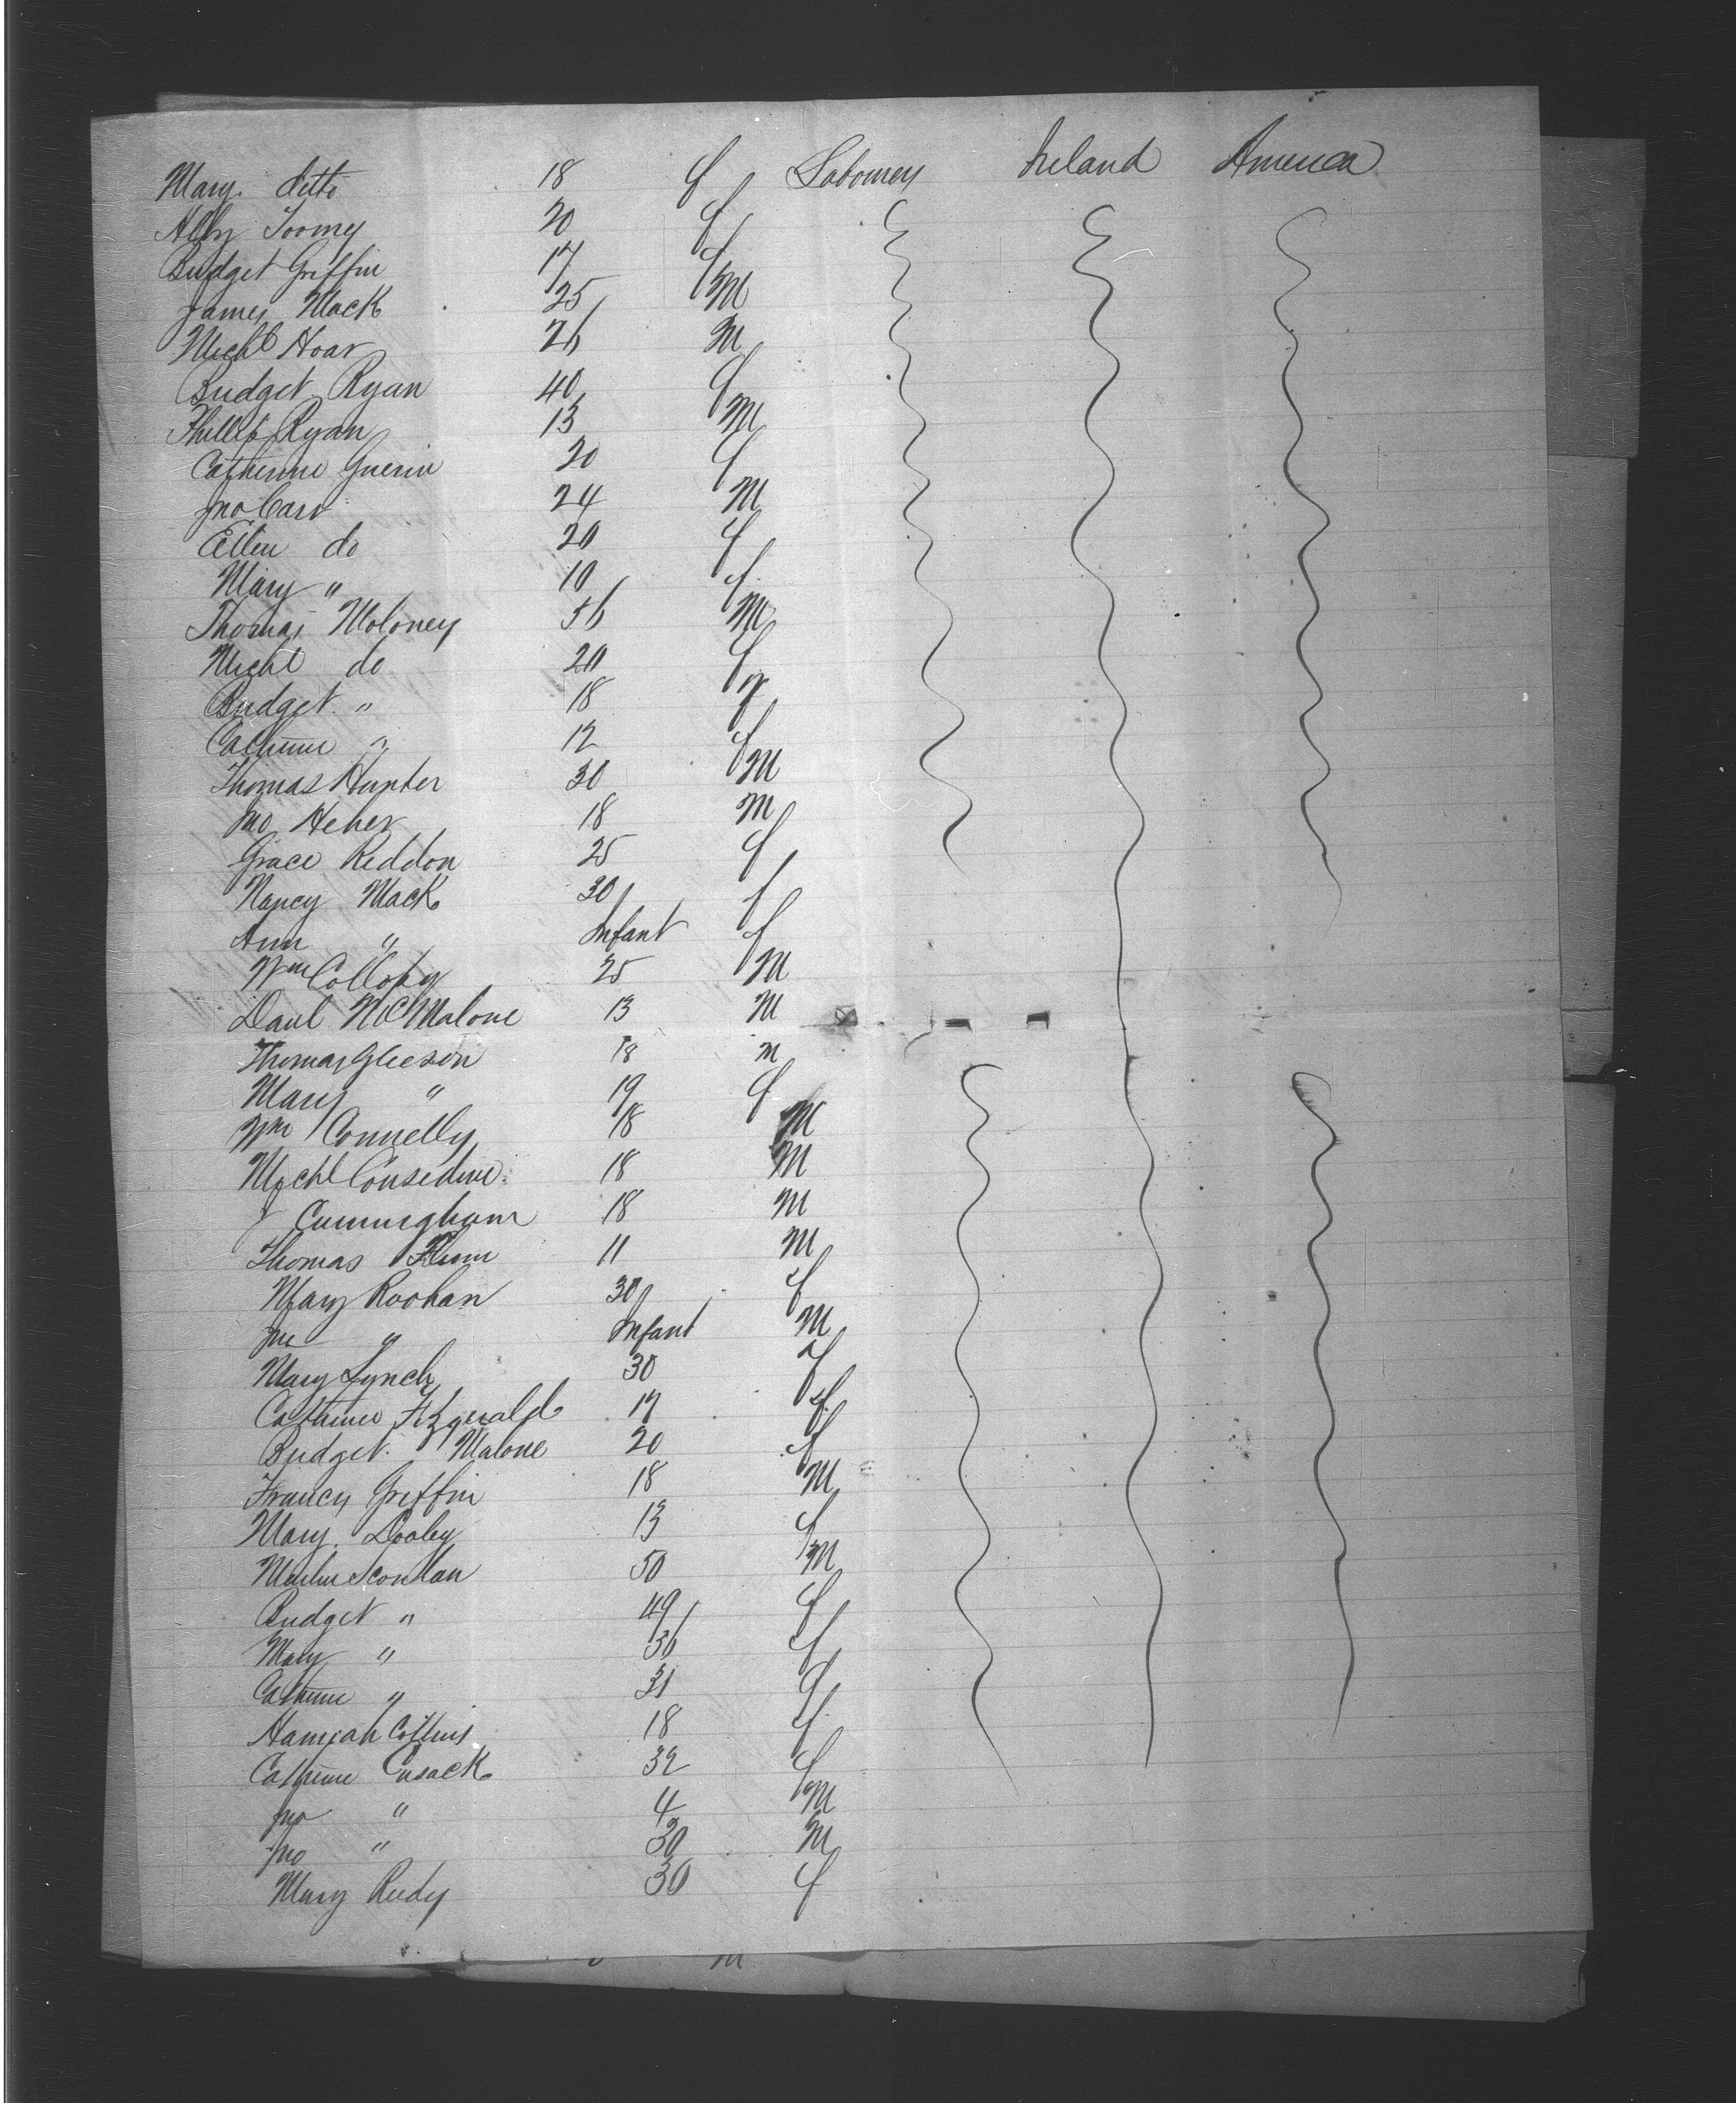 Mary ditto 18 f Labourers Ireland America
Abby Toomy 20 f
Bridget Griffin 17 f
James Mack 25 M
Michl Hoar 26 M
Bridget Ryan 40 f
Phillip Ryan 13 M
Catherine Guerin 20 f
Jno Carr 24 M
Ellen do 20 f
Mary " 10 f
Thomas Moloney 56 M
Michl do 20 f
Bridget " 18 f
Catherine " 12 f
Thomas Hunter 30 M
Jno Heher 18 M
Grace Reddon 25 f
Nancy Mack 30 f
Ann " Infant f
Wm Collopy 25 M
Danl McMalone 13 M
Thomas Gleeson 18 M
Mary " 19 f
Wm Connelly 18 M
Michl Considine 18 M
J Cunningham 18 M
Thomas Flinn 11 M
Mary Roohan 30 f
Jno " Infant M
Mary Lynch 30 f
Catherine Fitzgerald 17 f
Bridget Malone 20 f
Francis Griffin 18 M
Mary Dooley 13 f
Martin Sconlan 50 M
Bridget " 49 f
Mary " 36 f
Catherine " 31 f
Hannah Collins 18 f
Catherine Cusack 32 f
Jno " 4 M
Jno " 30 M
Mary Reidy 30 f
M